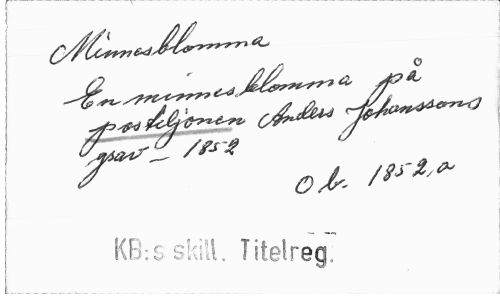 Minnesblomma
En minnesblomma på
postiljonen Anders Johanssons
grav – 1852
O b. 1852,a
KB:s skill. Titelreg.